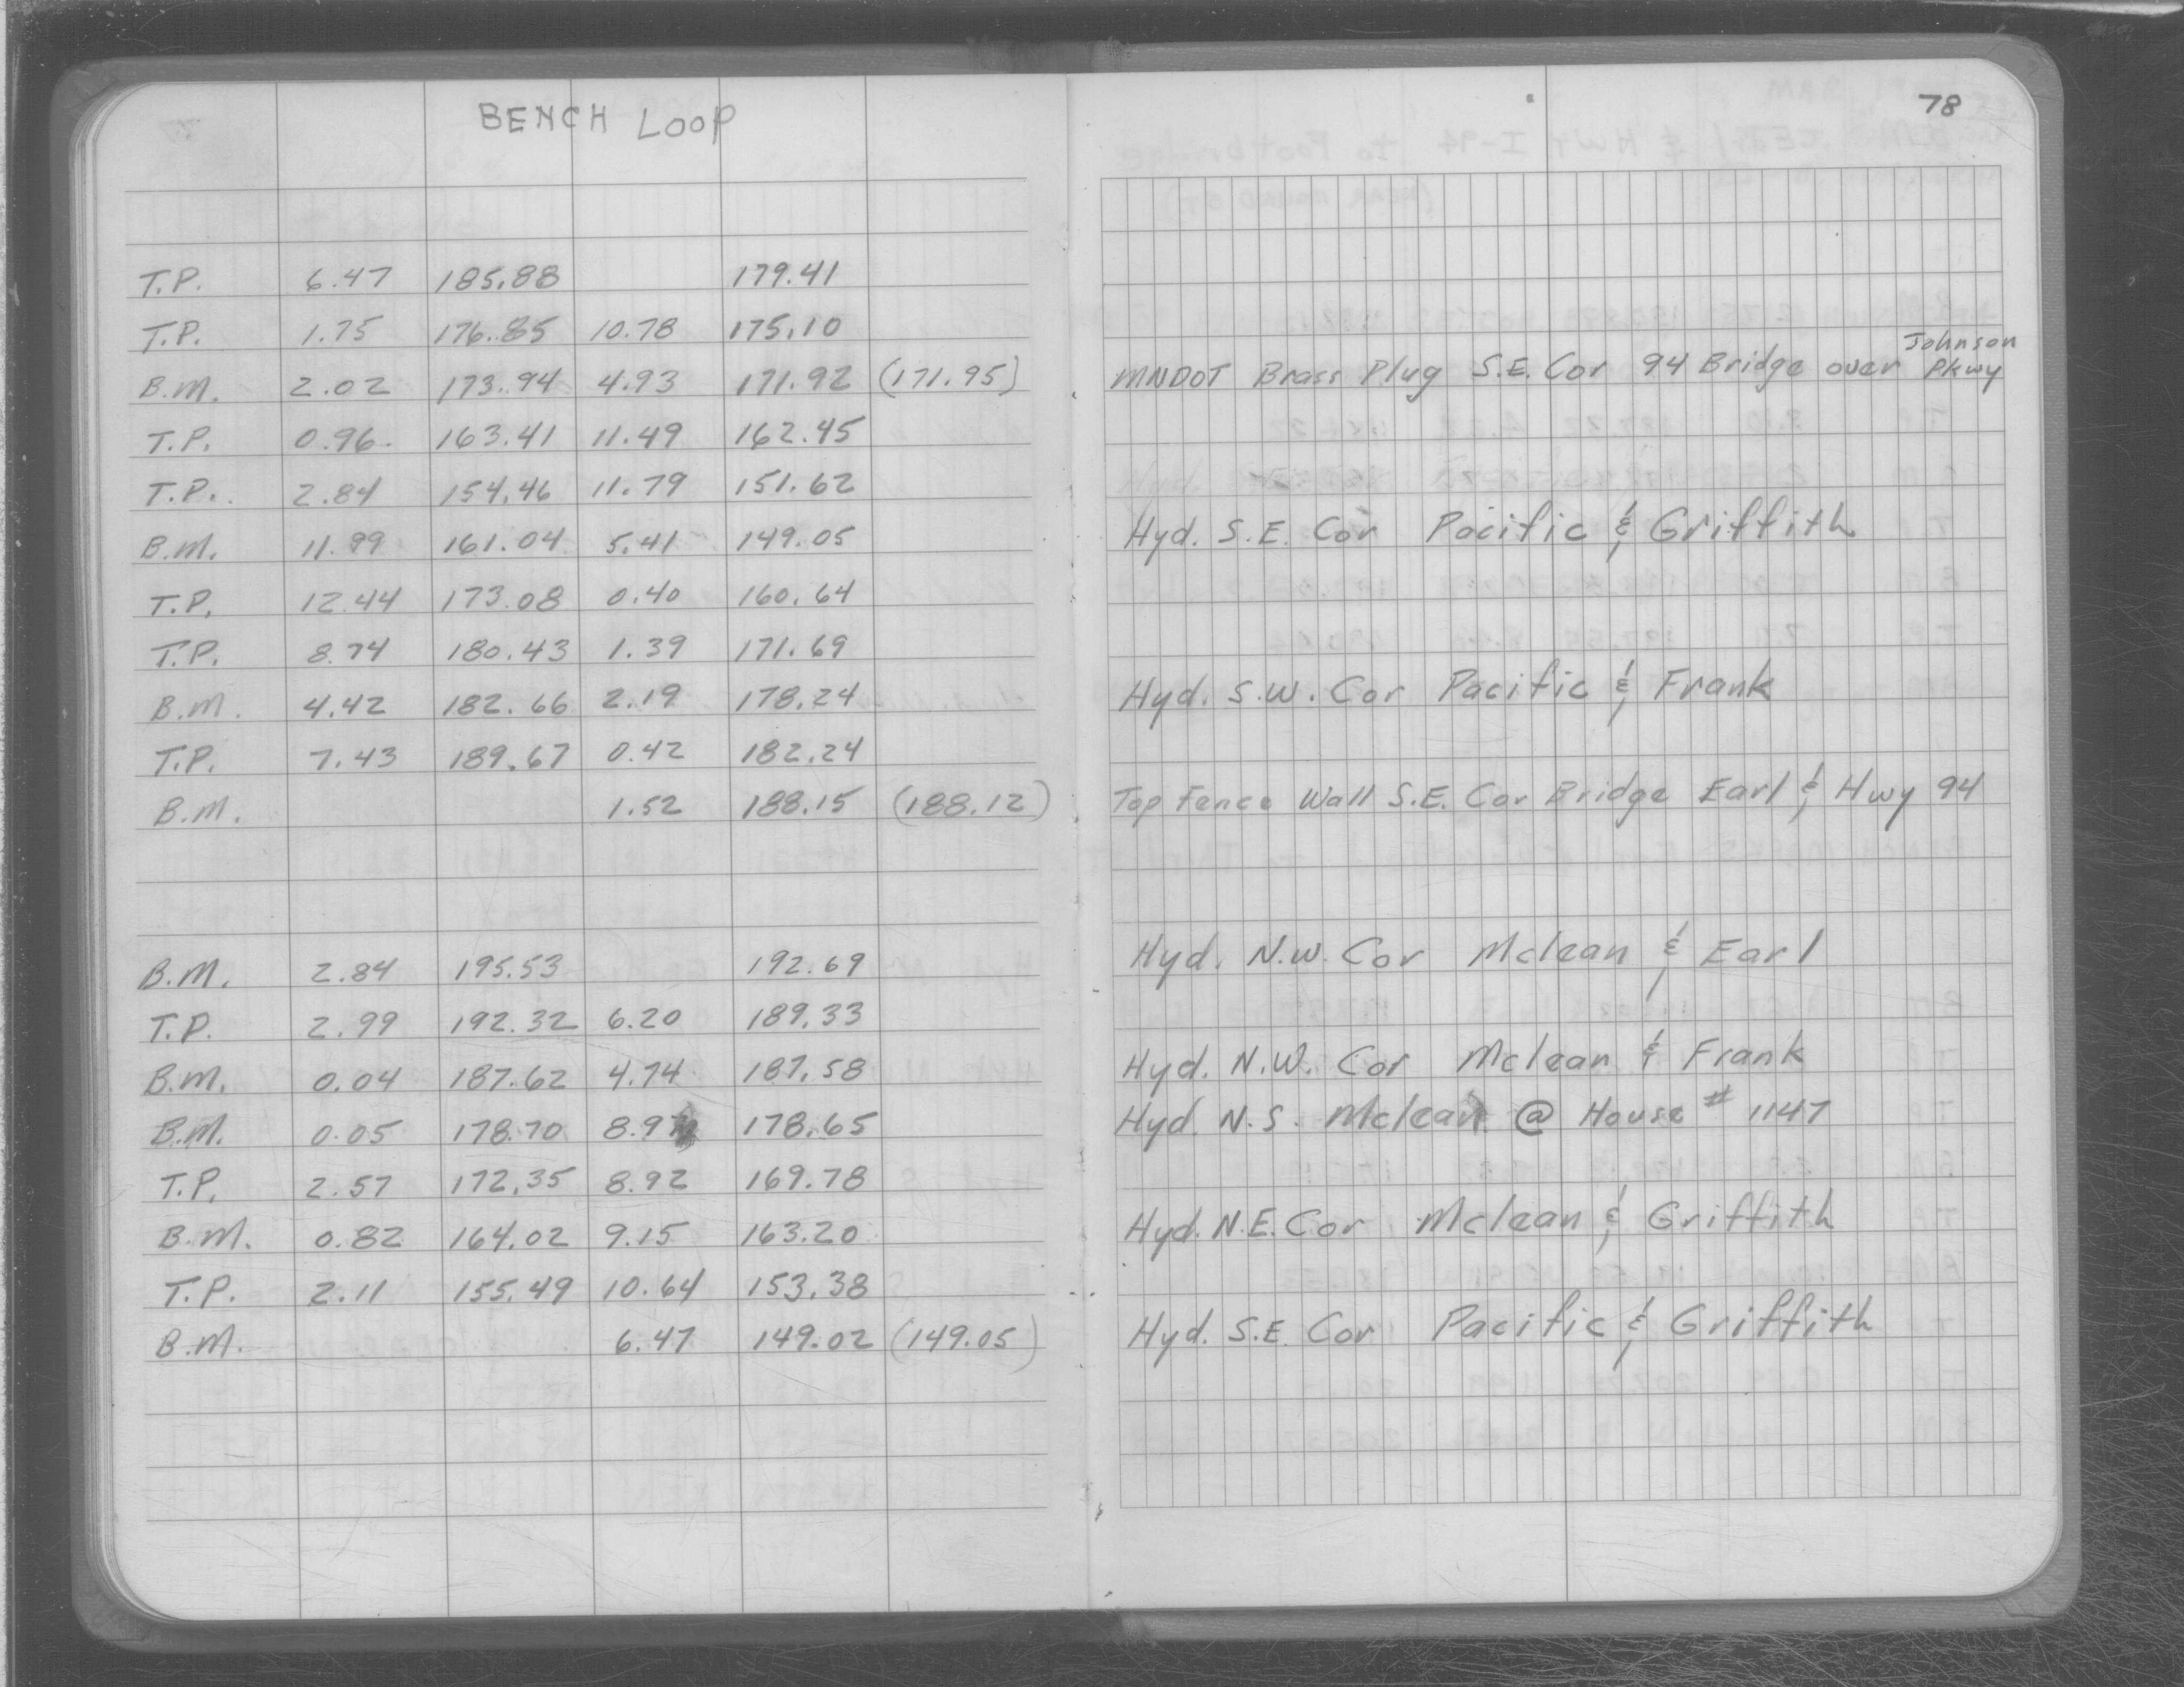 BENCH LOOP
78
T.P. 6.47 185.88 179.41
T.P. 1.75 176.85 10.78 175.10
B.M. 2.02 173.94 4.93 171.92 (171.95) MNDOT Brass Plug S.E. Cor 94 Bridge over Johnson Pkwy
T.P. 0.96 163.41 11.49 162.45
T.P. 2.84 154.46 11.79 151.62
B.M. 11.99 161.04 5.41 149.05 Hyd. S.E. Cor Pacific & Griffith
T.P. 12.44 173.08 0.40 160.64
T.P. 8.74 180.43 1.39 171.69
B.M. 4.42 182.66 2.19 178.24 Hyd. S.W. Cor Pacific & Frank
T.P. 7.43 189.67 0.42 182.24
B.M. 1.52 188.15 (188.12) Top Fence Wall S.E. Cor Bridge Earl & Hwy 94
B.M. 2.84 195.53 192.69 Hyd. N.W. Cor Mclean & Earl
T.P. 2.99 192.32 6.20 189.33
B.M. 0.04 187.62 4.74 187.58 Hyd. N.W. Cor Mclean & Frank
B.M. 0.05 178.70 8.97 178.65 Hyd. N.S. Mclean @ House # 1147
T.P. 2.57 172.35 8.92 169.78
B.M. 0.82 164.02 9.15 163.20 Hyd. N.E. Cor Mclean & Griffith
T.P. 2.11 155.49 10.64 153.38
B.M. 6.47 149.02 (149.05) Hyd. S.E. Cor Pacific & Griffith